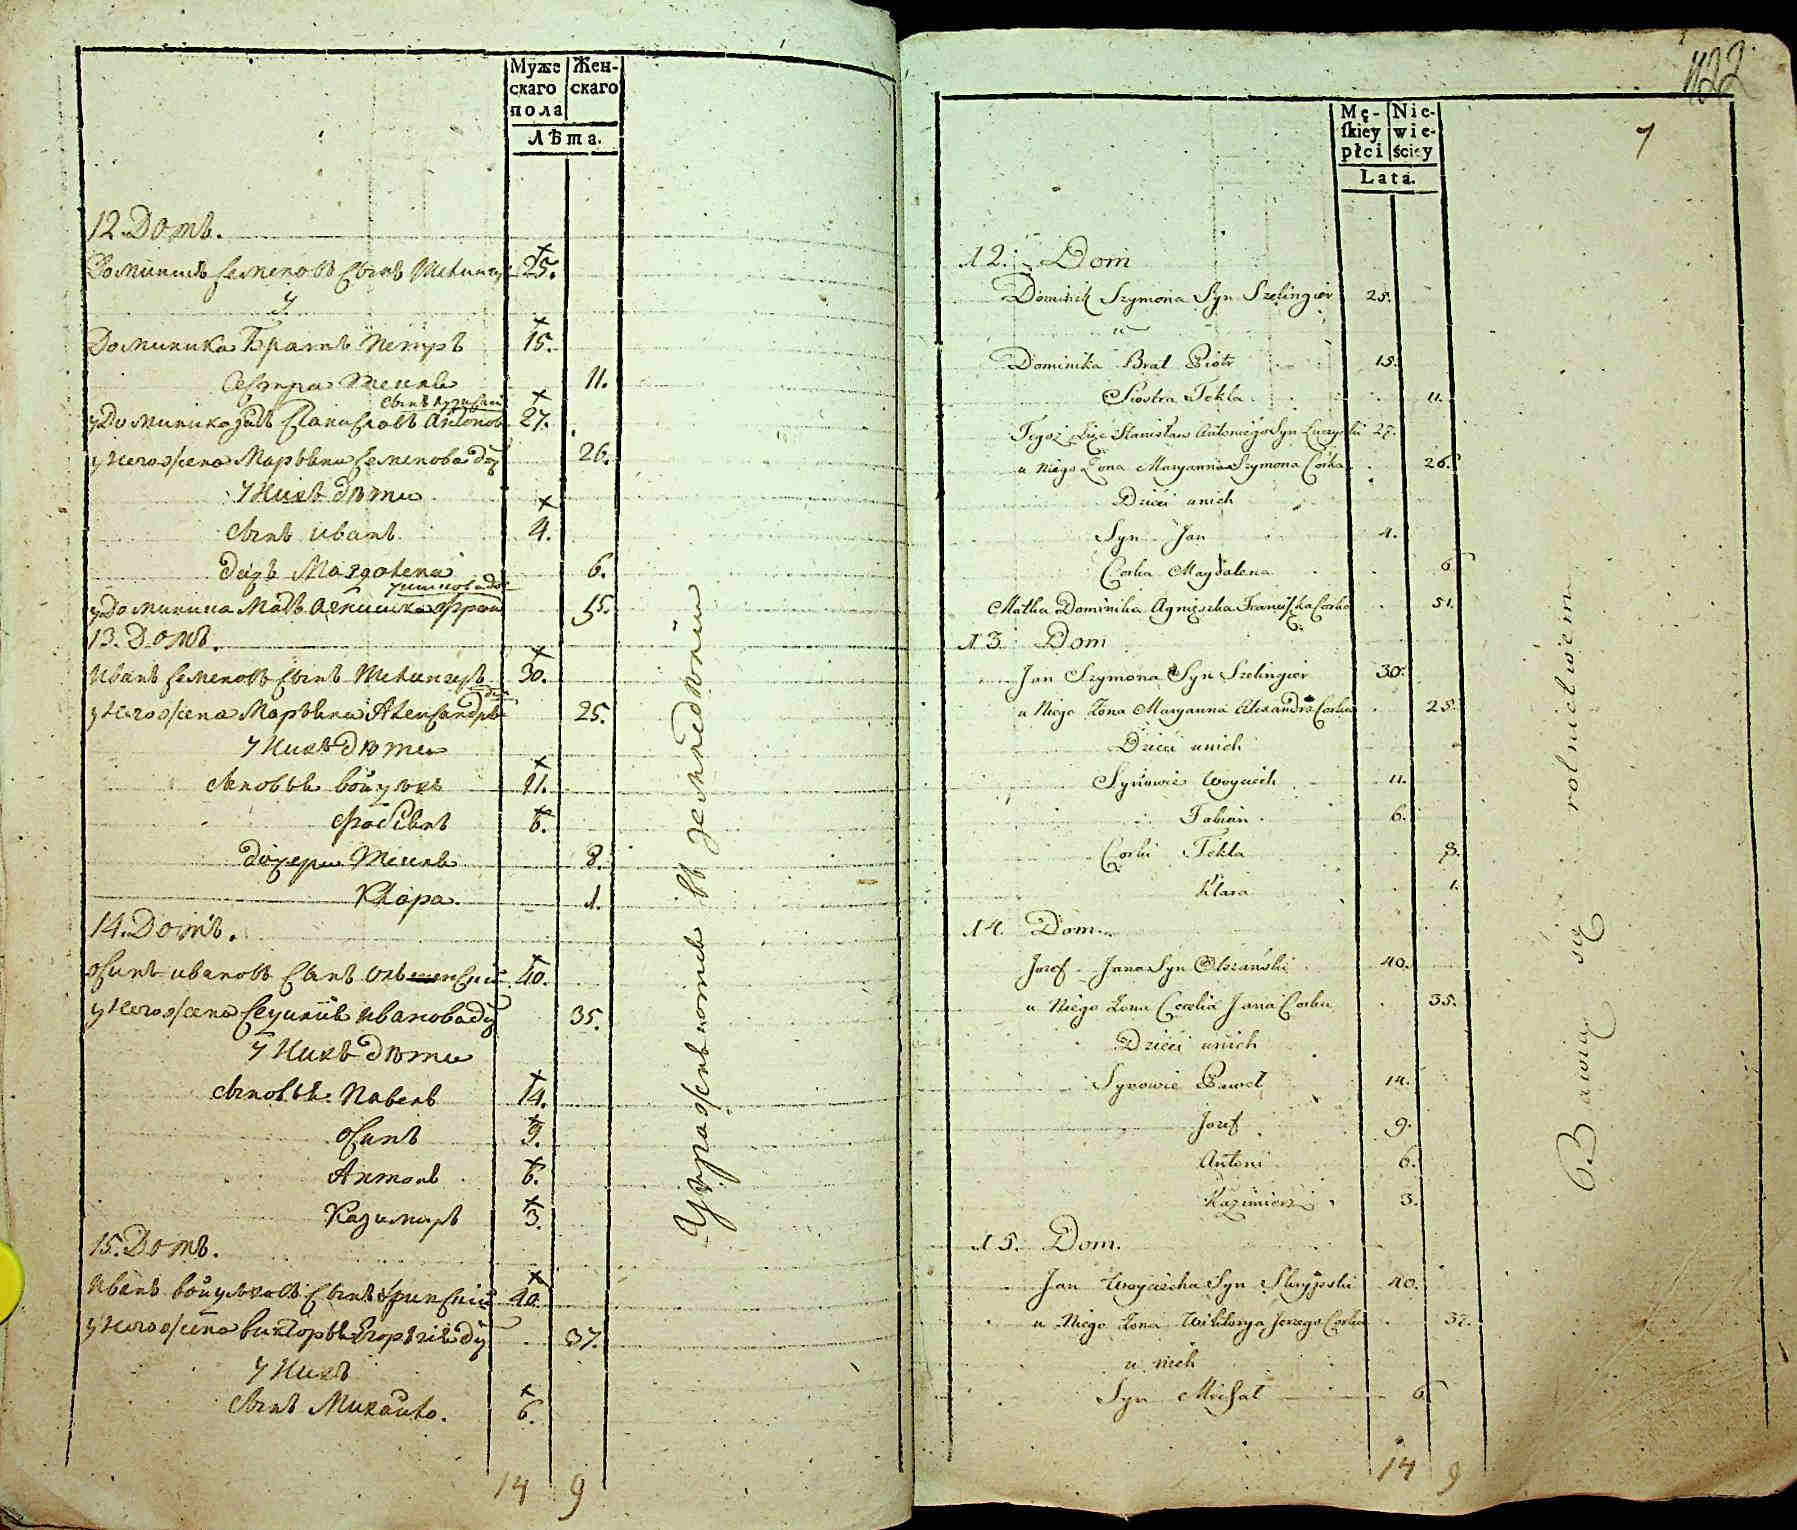 Муже
скаго
пола
Жен-
скаго
Лѣта.
12. Домъ.
Доминикъ Семеновъ Сынъ Шелингер 25.
У
Доминика Братъ Петръ 15.
Сестра Текля 11.
Сынъ
у Доминика зять Станиславъ Антонов 27.
у Него жена Марьяна Семенова дщ 26.
У Нихъ дѣти
Сынъ Иванъ 4.
дщерь Магдалена 6.
у Доминика Мать Агнишка 51.
13. Домъ.
Иванъ Семеновъ Сынъ Шелингеръ 30.
у Него жена Марьяна Александръ 25.
У Нихъ дѣти
Сыновья Войцѣхъ 11.
Фабіянъ 6.
дщери Текля 8.
Клара. 1.
14. Домъ.
Осипъ Ивановъ Сынъ 40.
у Него жена Сецилія Иванова дщ 35.
У Нихъ дѣти
Сыновья: Павелъ 14.
Осипъ 9.
Антонъ 6.
Казимиръ 3.
15. Домъ.
Иванъ Войцѣховъ Сынъ 40
у Него жена Викторія дщ 37.
У Нихъ
Сынъ Михайло. 6.
14 9
Упражняются въ земледѣліи
422
7
Mę-
ſkiey
płci
Nie-
wie-
ściey
Lata.
12. Dom
Dominik Szymona Syn Szelingier 25.
u
Dominika Brat Piotr 15.
Siostra Tekla 11.
Tegoż Stanisław Antoniego Syn 27.
u Niego Żona Maryanna Szymona Corka 26.
Dzieci unich
Syn Jan 4.
Corka Magdalena 6
Matka Dominika Agnieszka Franciszka Corka 51.
13 Dom
Jan Szymona Syn Szelingier 30.
u Niego Żona Maryanna Alexandra Corka 25.
Dzieci unich
Synowie Woyciech 11.
Fabian 6.
Corki Tekla 8.
Klara 1.
14 Dom.
Jozef Jana Syn Olszański 40.
u Niego Żona Cecelia Jana Corka 35.
Dzieci unich
Synowie Paweł 14.
Jozef 9.
Antoni 6.
Kazimierz 3.
15. Dom.
Jan Woyciecha Syn 40.
u Niego Żona Wiktorya Jerzego Corka 37.
u nich
Syn Michał 6
14 9
Bawią się rolnictwem